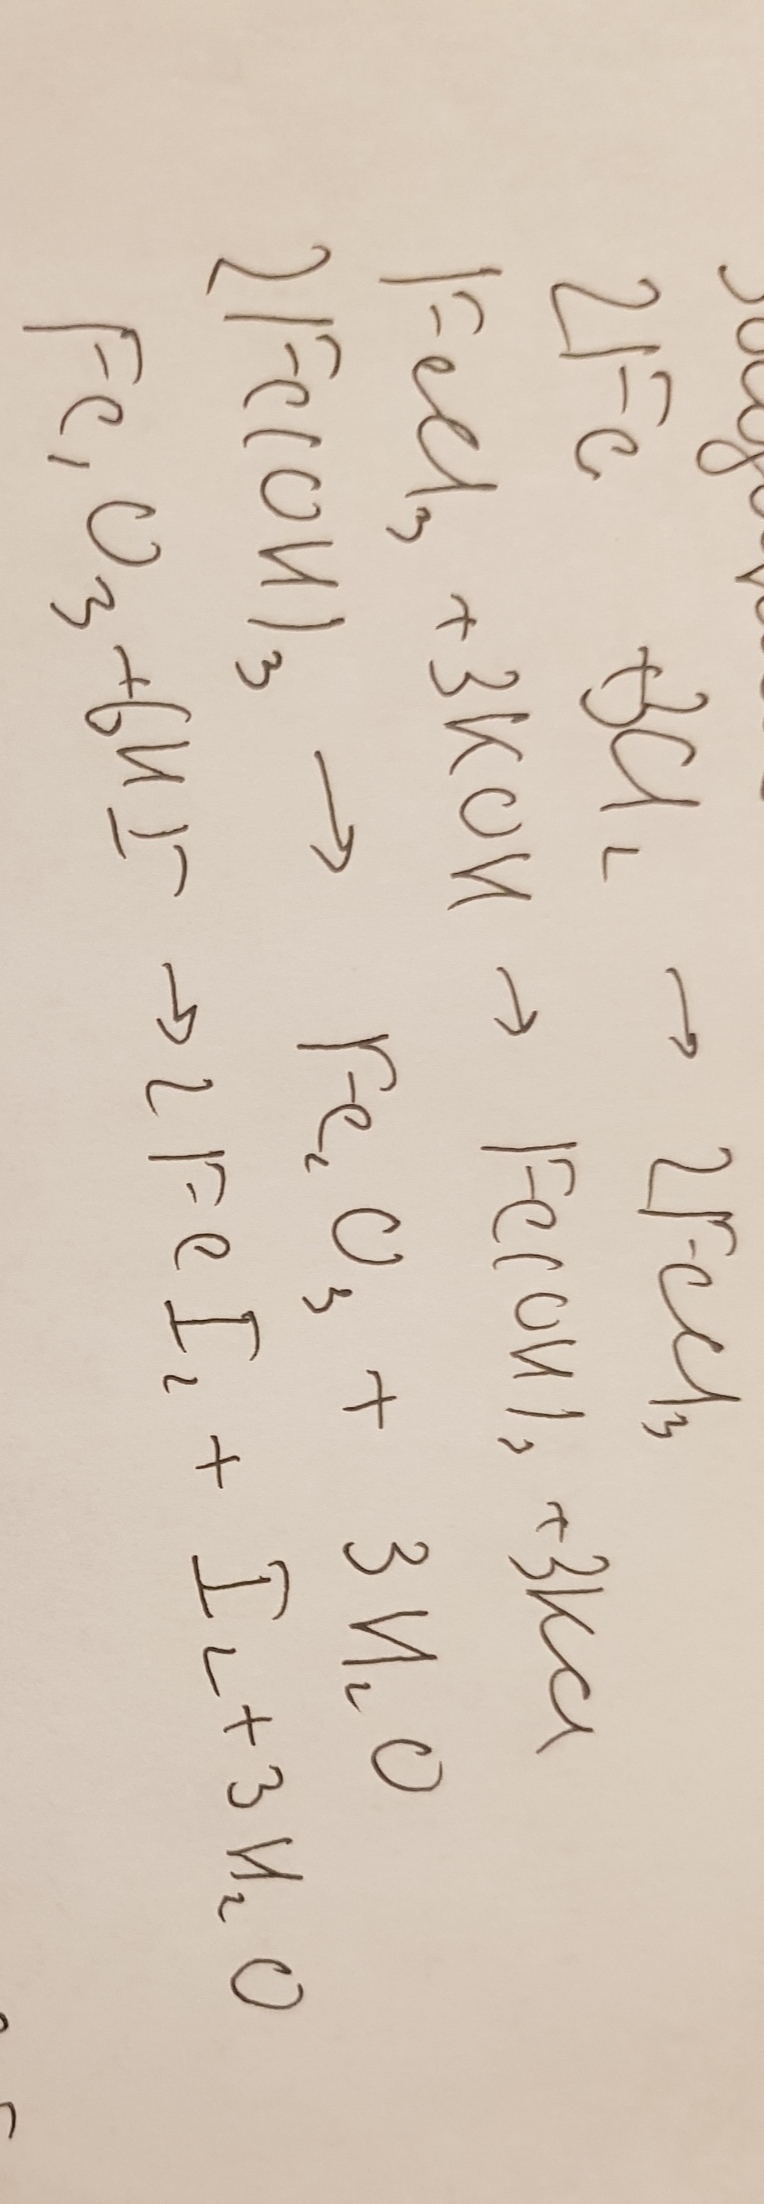 2Fe + 3Cl₂ → 2FeCl₃
FeCl₃ + 3KOH → Fe(OH)₃ + 3KCl
2Fe(OH)₃ → Fe₂O₃ + 3H₂O
Fe₂O₃ + 6HI → 2FeI₂ + I₂ + 3H₂O